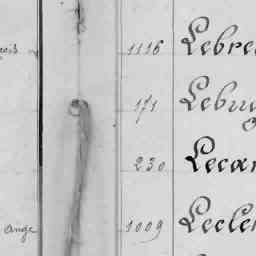 1116 Lebre
171 Lebu
230 Lecar
ange 1009 Lecler